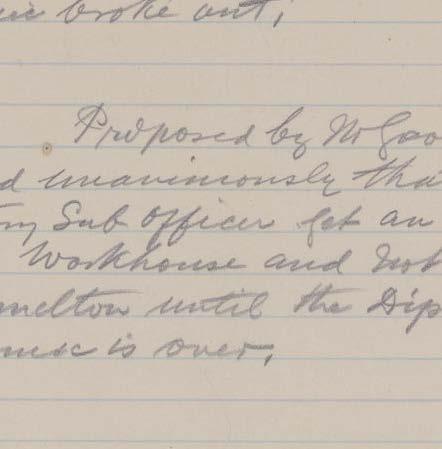 broke out,
Proposed by Mr
d unanimously tha
Sub Officer get an
Workhouse and not
melton until the Dip
is over,